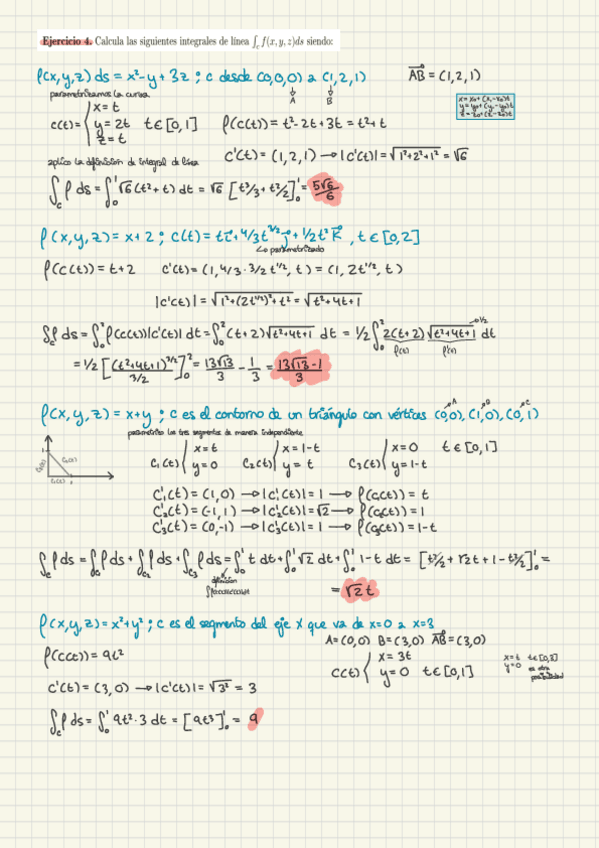 Ejercicio 4. Calcula las siguientes integrales de línea ∫_c f(x, y, z)ds siendo:
f(x,y,z) ds = x²-y+3z ; c desde (0,0,0) a (1,2,1)   AB = (1,2,1)
A   B
parametrizamos la curva
c(t) = { x=t   y=2t   z=t   t∈[0,1]   f(c(t)) = t²-2t+3t = t²+t
x = x₀+(x₁-x₀)t
y = y₀+(y₁-y₀)t
z = z₀+(z₁-z₀)t
aplico la definición de integral de línea   c'(t) = (1,2,1) → |c'(t)| = √1²+2²+1² = √6
∫_c f ds = ∫₀¹ √6(t²+t) dt = √6 [t³/3+t²/2]₀¹ = 5√6/6
f(x,y,z) = x+2 ; c(t) = ti+4/3t^3/2 j+1/2t² k, t∈[0,2]
parametrizado
f(c(t)) = t+2   c'(t) = (1, 4/3·3/2t^1/2, t) = (1, 2t^1/2, t)
|c'(t)| = √1²+(2t^1/2)²+t² = √t²+4t+1
∫_c f ds = ∫₀² f(c(t))|c'(t)| dt = ∫₀² (t+2)√t²+4t+1 dt = 1/2∫₀² 2(t+2)√t²+4t+1 dt
1/2
= 1/2 [(t²+4t+1)^3/2 / 3/2]₀² = 13√13/3 - 1/3 = 13√13-1/3
f(x,y,z) = x+y ; c es el contorno de un triángulo con vértices (0,0), (1,0), (0,1)
A   B   C
parametrizo los tres segmentos de manera independiente
c₁(t) { x=t   y=0   c₂(t) { x=1-t   y=t   c₃(t) { x=0   y=1-t   t∈[0,1]
c₃(t)   c₂(t)   c₁(t)
c'₁(t) = (1,0) → |c'₁(t)| = 1 → f(c₁(t)) = t
c'₂(t) = (-1,1) → |c'₂(t)| = √2 → f(c₂(t)) = 1
c'₃(t) = (0,-1) → |c'₃(t)| = 1 → f(c₃(t)) = 1-t
∫_c f ds = ∫_c₁ f ds + ∫_c₂ f ds + ∫_c₃ f ds = ∫₀¹ t dt + ∫₀¹ √2 dt + ∫₀¹ 1-t dt = [t²/2+√2t+1-t²/2]₀¹ =
definición
= √2 t
f(x,y,z) = x²+y² ; c es el segmento del eje X que va de x=0 a x=3
A=(0,0) B=(3,0) AB=(3,0)
f(c(t)) = 9t²   c(t) { x=3t   y=0   t∈[0,1]
x=t   t∈[0,3]
y=0   es otra
posibilidad
c'(t) = (3,0) → |c'(t)| = √3² = 3
∫_c f ds = ∫₀¹ 9t²·3 dt = [9t³]₀¹ = 9